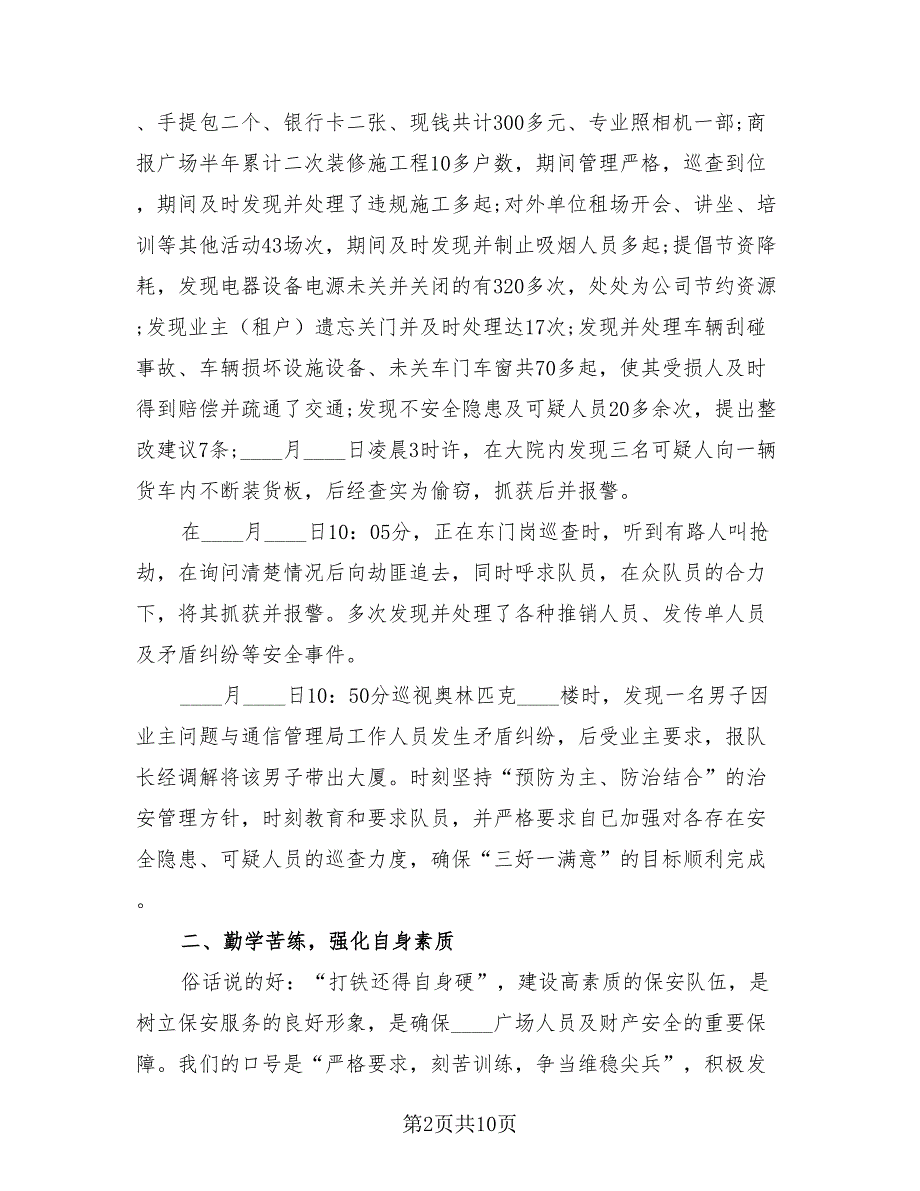 、手提包二个、银行卡二张、现钱共计300多元、专业照相机一部;商
报广场半年累计二次装修施工程10多户数，期间管理严格，巡查到位
，期间及时发现并处理了违规施工多起;对外单位租场开会、讲坐、培
训等其他活动43场次，期间及时发现并制止吸烟人员多起;提倡节资降
耗，发现电器设备电源未关并关闭的有320多次，处处为公司节约资源
;发现业主（租户）遗忘关门并及时处理达17次;发现并处理车辆刮碰
事故、车辆损坏设施设备、未关车门车窗共70多起，使其受损人及时
得到赔偿并疏通了交通;发现不安全隐患及可疑人员20多余次，提出整
改建议7条;____月____日凌晨3时许，在大院内发现三名可疑人向一辆
货车内不断装货板，后经查实为偷窃，抓获后并报警。
在____月____日10：05分，正在东门岗巡查时，听到有路人叫抢
劫，在询问清楚情况后向劫匪追去，同时呼求队员，在众队员的合力
下，将其抓获并报警。多次发现并处理了各种推销人员、发传单人员
及矛盾纠纷等安全事件。
____月____日10：50分巡视奥林匹克____楼时，发现一名男子因
业主问题与通信管理局工作人员发生矛盾纠纷，后受业主要求，报队
长经调解将该男子带出大厦。时刻坚持“预防为主、防治结合”的治
安管理方针，时刻教育和要求队员，并严格要求自已加强对各存在安
全隐患、可疑人员的巡查力度，确保“三好一满意”的目标顺利完成
。
二、勤学苦练，强化自身素质
俗话说的好：“打铁还得自身硬”，建设高素质的保安队伍，是
树立保安服务的良好形象，是确保____广场人员及财产安全的重要保
障。我们的口号是“严格要求，刻苦训练，争当维稳尖兵”，积极发
第2页共10页